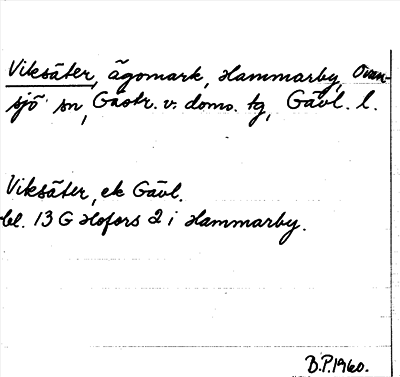 Viksäter, ägomark, Hammarby, Ovan-
sjö sn, Gästr. v. doms. tg, Gävl. l.
Viksäter, ek Gävl.
bl. 13 G Hofors 2 i Hammarby.
B.P. 1960.